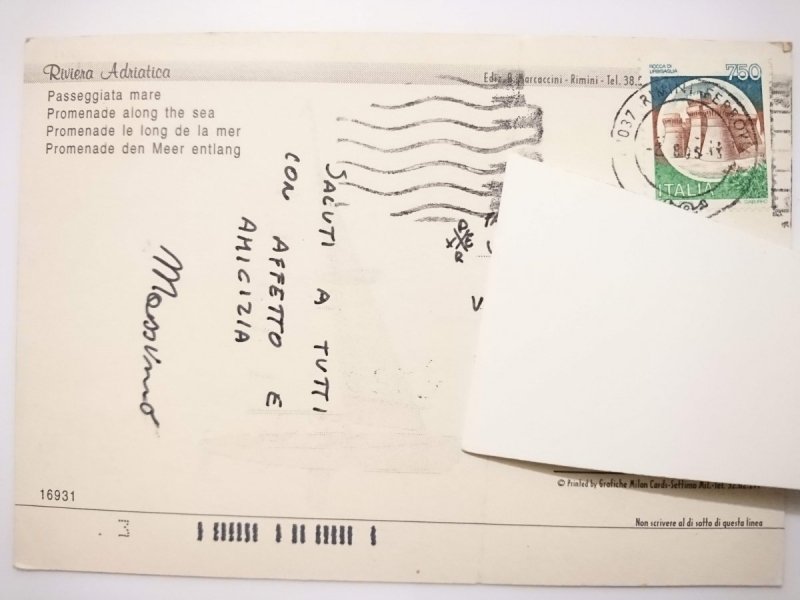 Riviera Adriatica
Passeggiata mare
Promenade along the sea
Promenade le long de la mer
Promenade den Meer entlang
Ediz. B. Marcaccini - Rimini - Tel. 38.
ROCCA DI URBISAGLIA
750
ITALIA
RIMINI FERROV
SALUTI A TUTTI
CON AFFETTO E
AMICIZIA
Massimo
16931
© Printed by Grafiche Milan Cards-Settimo Mil.-Tel.
Non scrivere al di sotto di questa linea